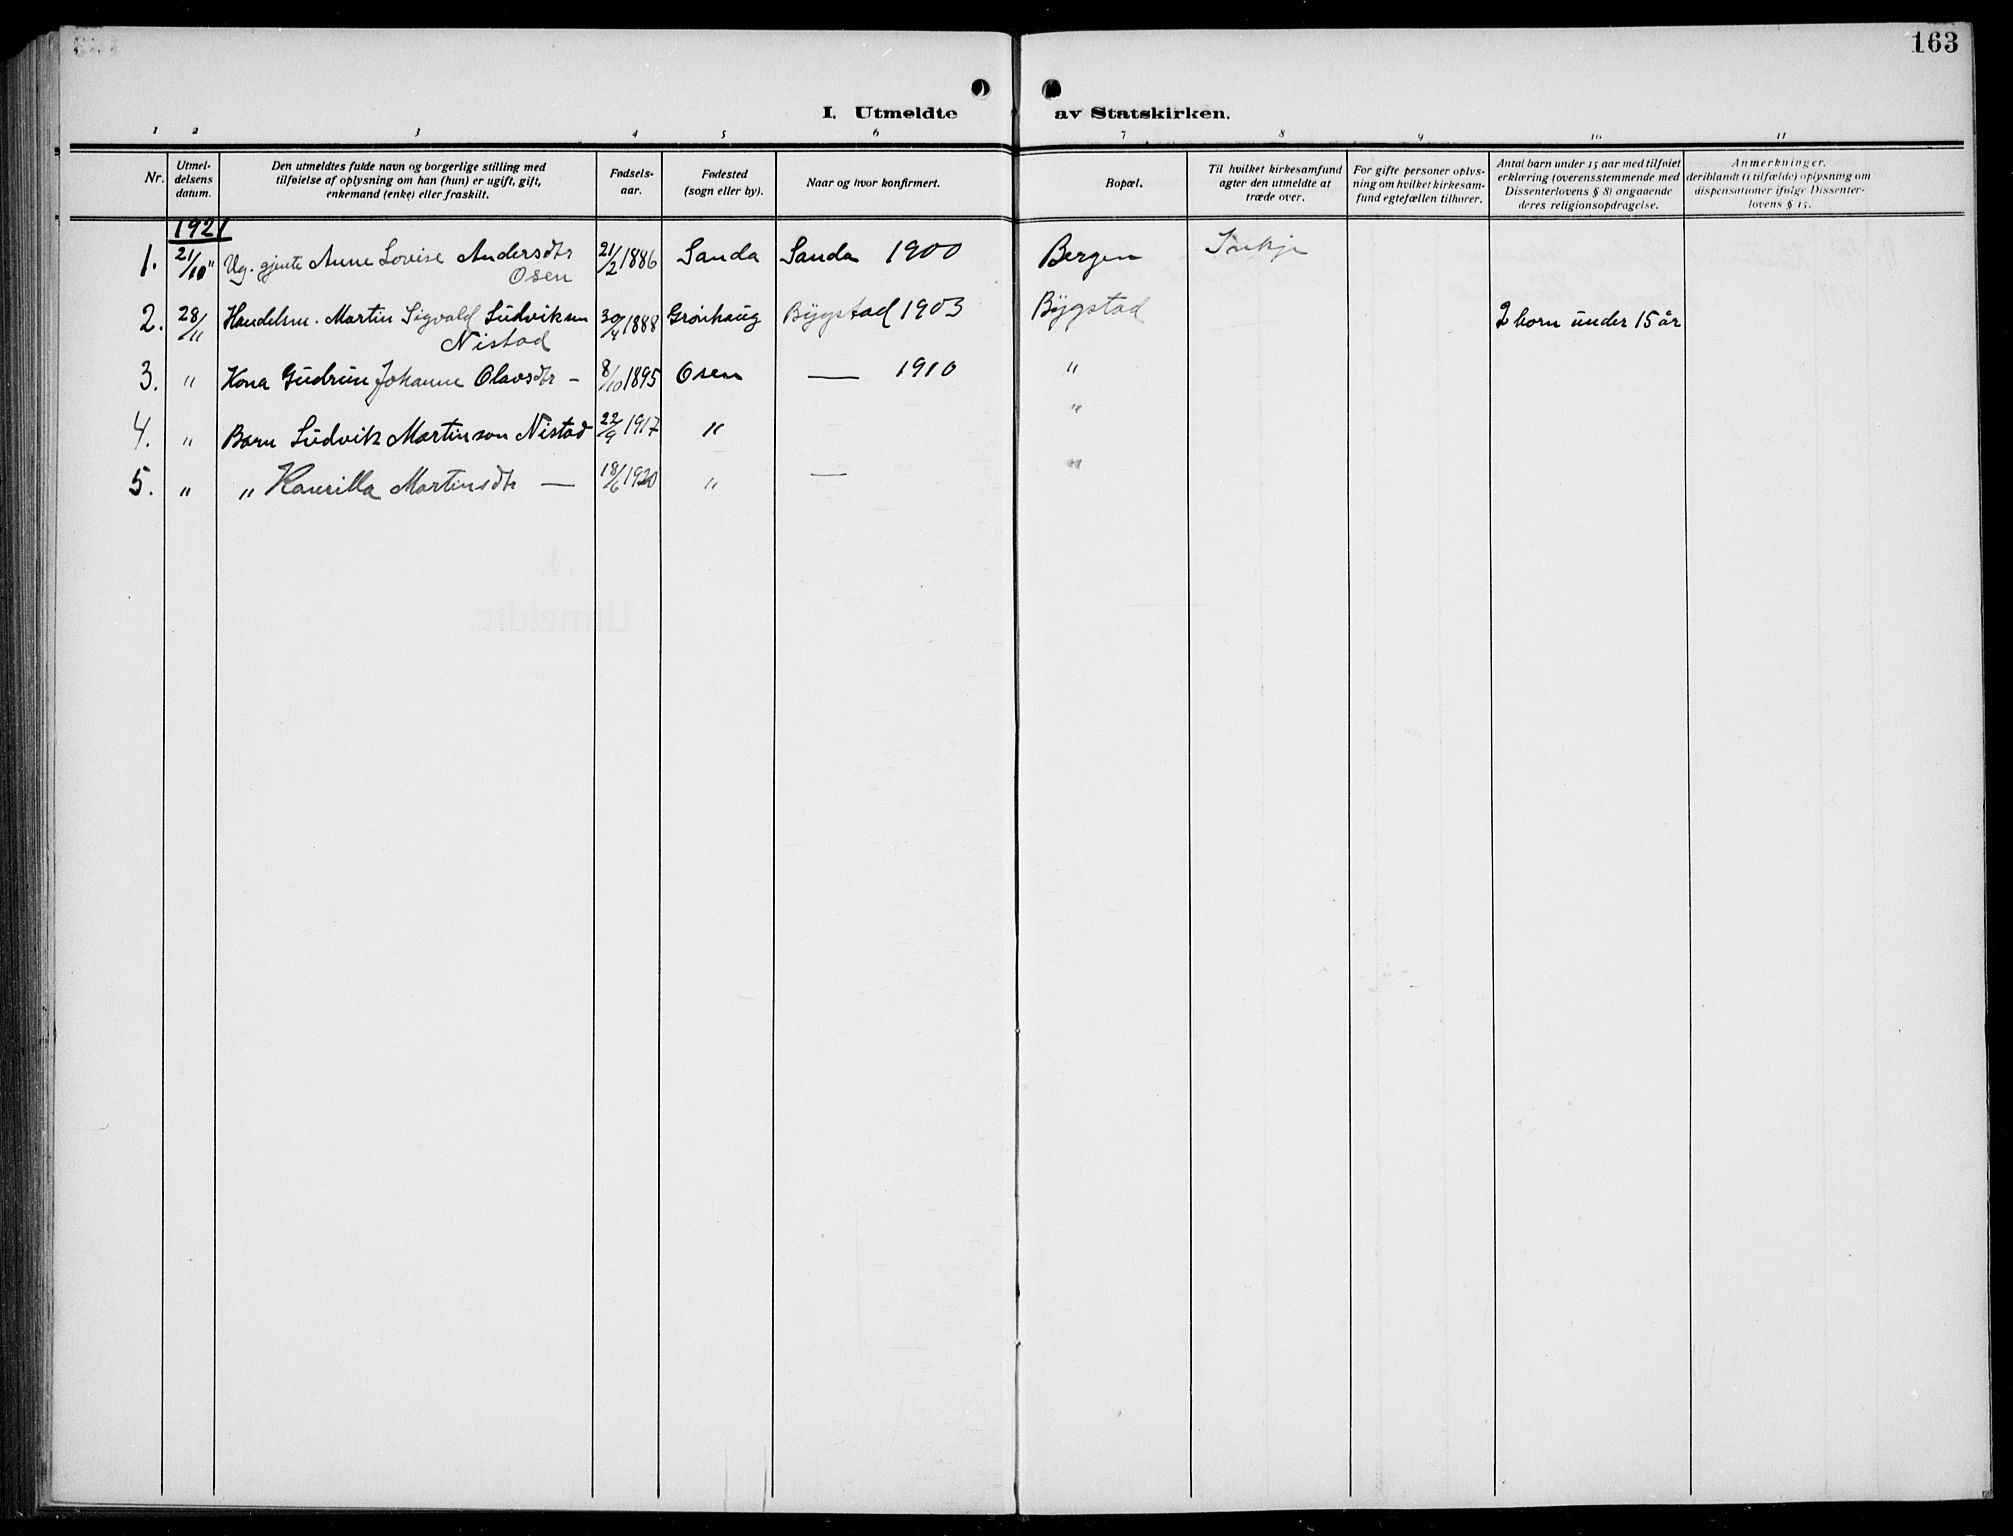 163
I. Utmeldte av Statskirken.
1 2 3 4 5 6 7 8 9 10 11
Nr.
Utmel-
delsens
datum.
Den utmeldtes fulde navn og borgerlige stilling med
tilføielse af oplysning om han (hun) er ugift, gift,
enkemand (enke) eller fraskilt.
Fødsels-
aar.
Fødested
(sogn eller by).
Naar og hvor konfirmert.
Bopæl.
Til hvilket kirkesamfund
agter den utmeldte at
træde over.
For gifte personer oplys-
ning om hvilket kirkesam-
fund egtefællen tilhører.
Antal barn under 15 aar med tilføiet
erklæring (overensstemmende med
Dissenterlovens § 8) angaaende
deres religionsopdragelse.
Anmerkninger,
deriblandt (i tilfælde) oplysning om
dispensationer ifølge Dissenter-
lovens § 15.
1921
1. 21/10 " Ug. gjente Anne Lovise Andersdtr 21/2 1886 Sanda Sanda 1900 Bergen Inkje
Osen
2. 28/11 Handelsm. Martin Sigvald Ludviksen 30/4 1888 Grönhaug Bygstad 1903 Bygstad 2 born under 15 år
Nistad
3. " Kona Gudrun Johanne Olavsdtr - 8/10 1895 Osen — 1910 "
4. " Barn Ludvik Martinson Nistad 22/9 1917 " "
5. " " Martinsdtr — 18/6 1920 " — "